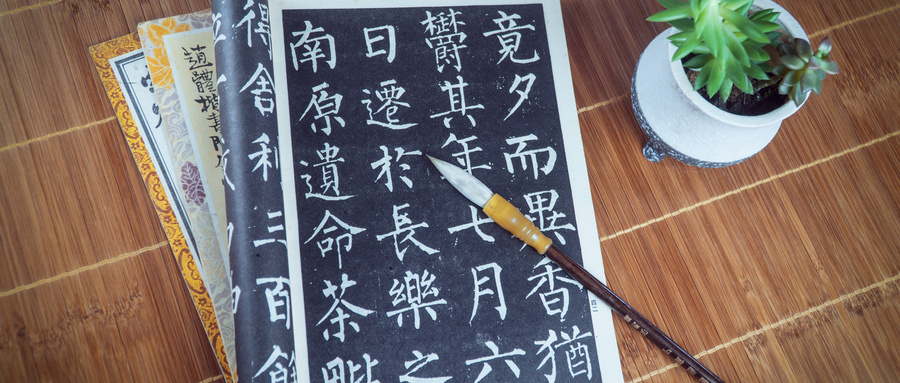 竟夕而異香猶
鬱其年七月六
日遷於長樂之
南原遺命茶毗
得舍利三百餘
趙體